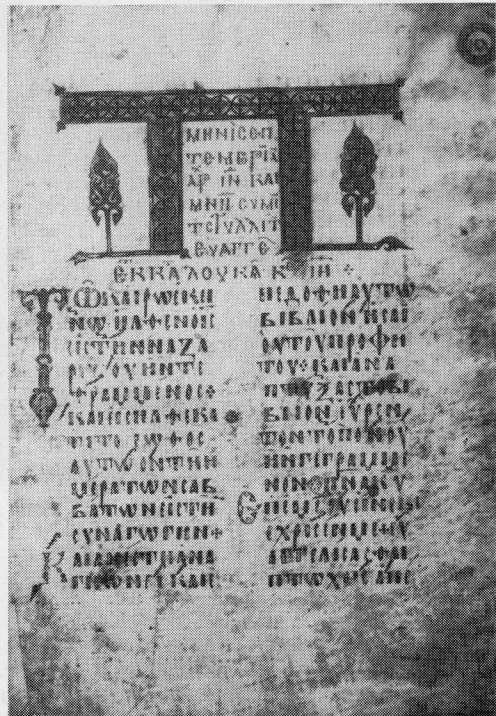 ΜΗΝΙ ϹΕΠ
ΤΕΜΒΡΙΩ
ΑΡ ΙΝ ΚΑΙ
ΜΝΗ ϹΥΜΕ
ϹΤΥΛΛΙΤ
ΕΥΑΓΓΕ
ΕΚ ΚΑ ΛΟΥΚΑ Κ ΙΗ +
ΤΩ ΚΑΙΡΩ ΕΚΕΙ
ΝΩ ΗΛΘΕΝ Ο ΙϹ
ΕΙϹ ΤΗΝ ΝΑΖΑ
ΡΕΤ ΟΥ ΗΝ ΤΕ
ΘΡΑΜΜΕΝΟϹ +
ΚΑΙ ΕΙϹΗΛΘΕ ΚΑ
ΤΑ ΤΟ ΕΙΩΘΟϹ
ΑΥΤΩ ΕΝ ΤΗ Η
ΜΕΡΑ ΤΩΝ ϹΑΒ
ΒΑΤΩΝ ΕΙϹ ΤΗΝ
ϹΥΝΑΓΩΓΗΝ +
ΚΑΙ ΑΝΕϹΤΗ ΑΝΑ
ΓΝΩΝΑΙ ΚΑΙ Ε
ΠΕΔΟΘΗ ΑΥΤΩ
ΒΙΒΛΙΟΝ ΗϹΑΙ
ΟΥ ΤΟΥ ΠΡΟΦΗ
ΤΟΥ + ΚΑΙ ΑΝΑ
ΠΤΥΞΑϹ ΤΟ ΒΙ
ΒΛΙΟΝ ΕΥΡΕΝ
ΤΟΝ ΤΟΠΟΝ ΟΥ
ΗΝ ΓΕΓΡΑΜΜΕ
ΝΟΝ + ΠΝΑ ΚΥ
ΕΠ ΕΜΕ ΟΥ
ΕΧΡΙϹΕΝ ΜΕ + ΕΥ
ΑΓΓΕΛΙϹΑϹΘΑΙ
ΠΤΩΧΟΙϹ ΑΠΕ